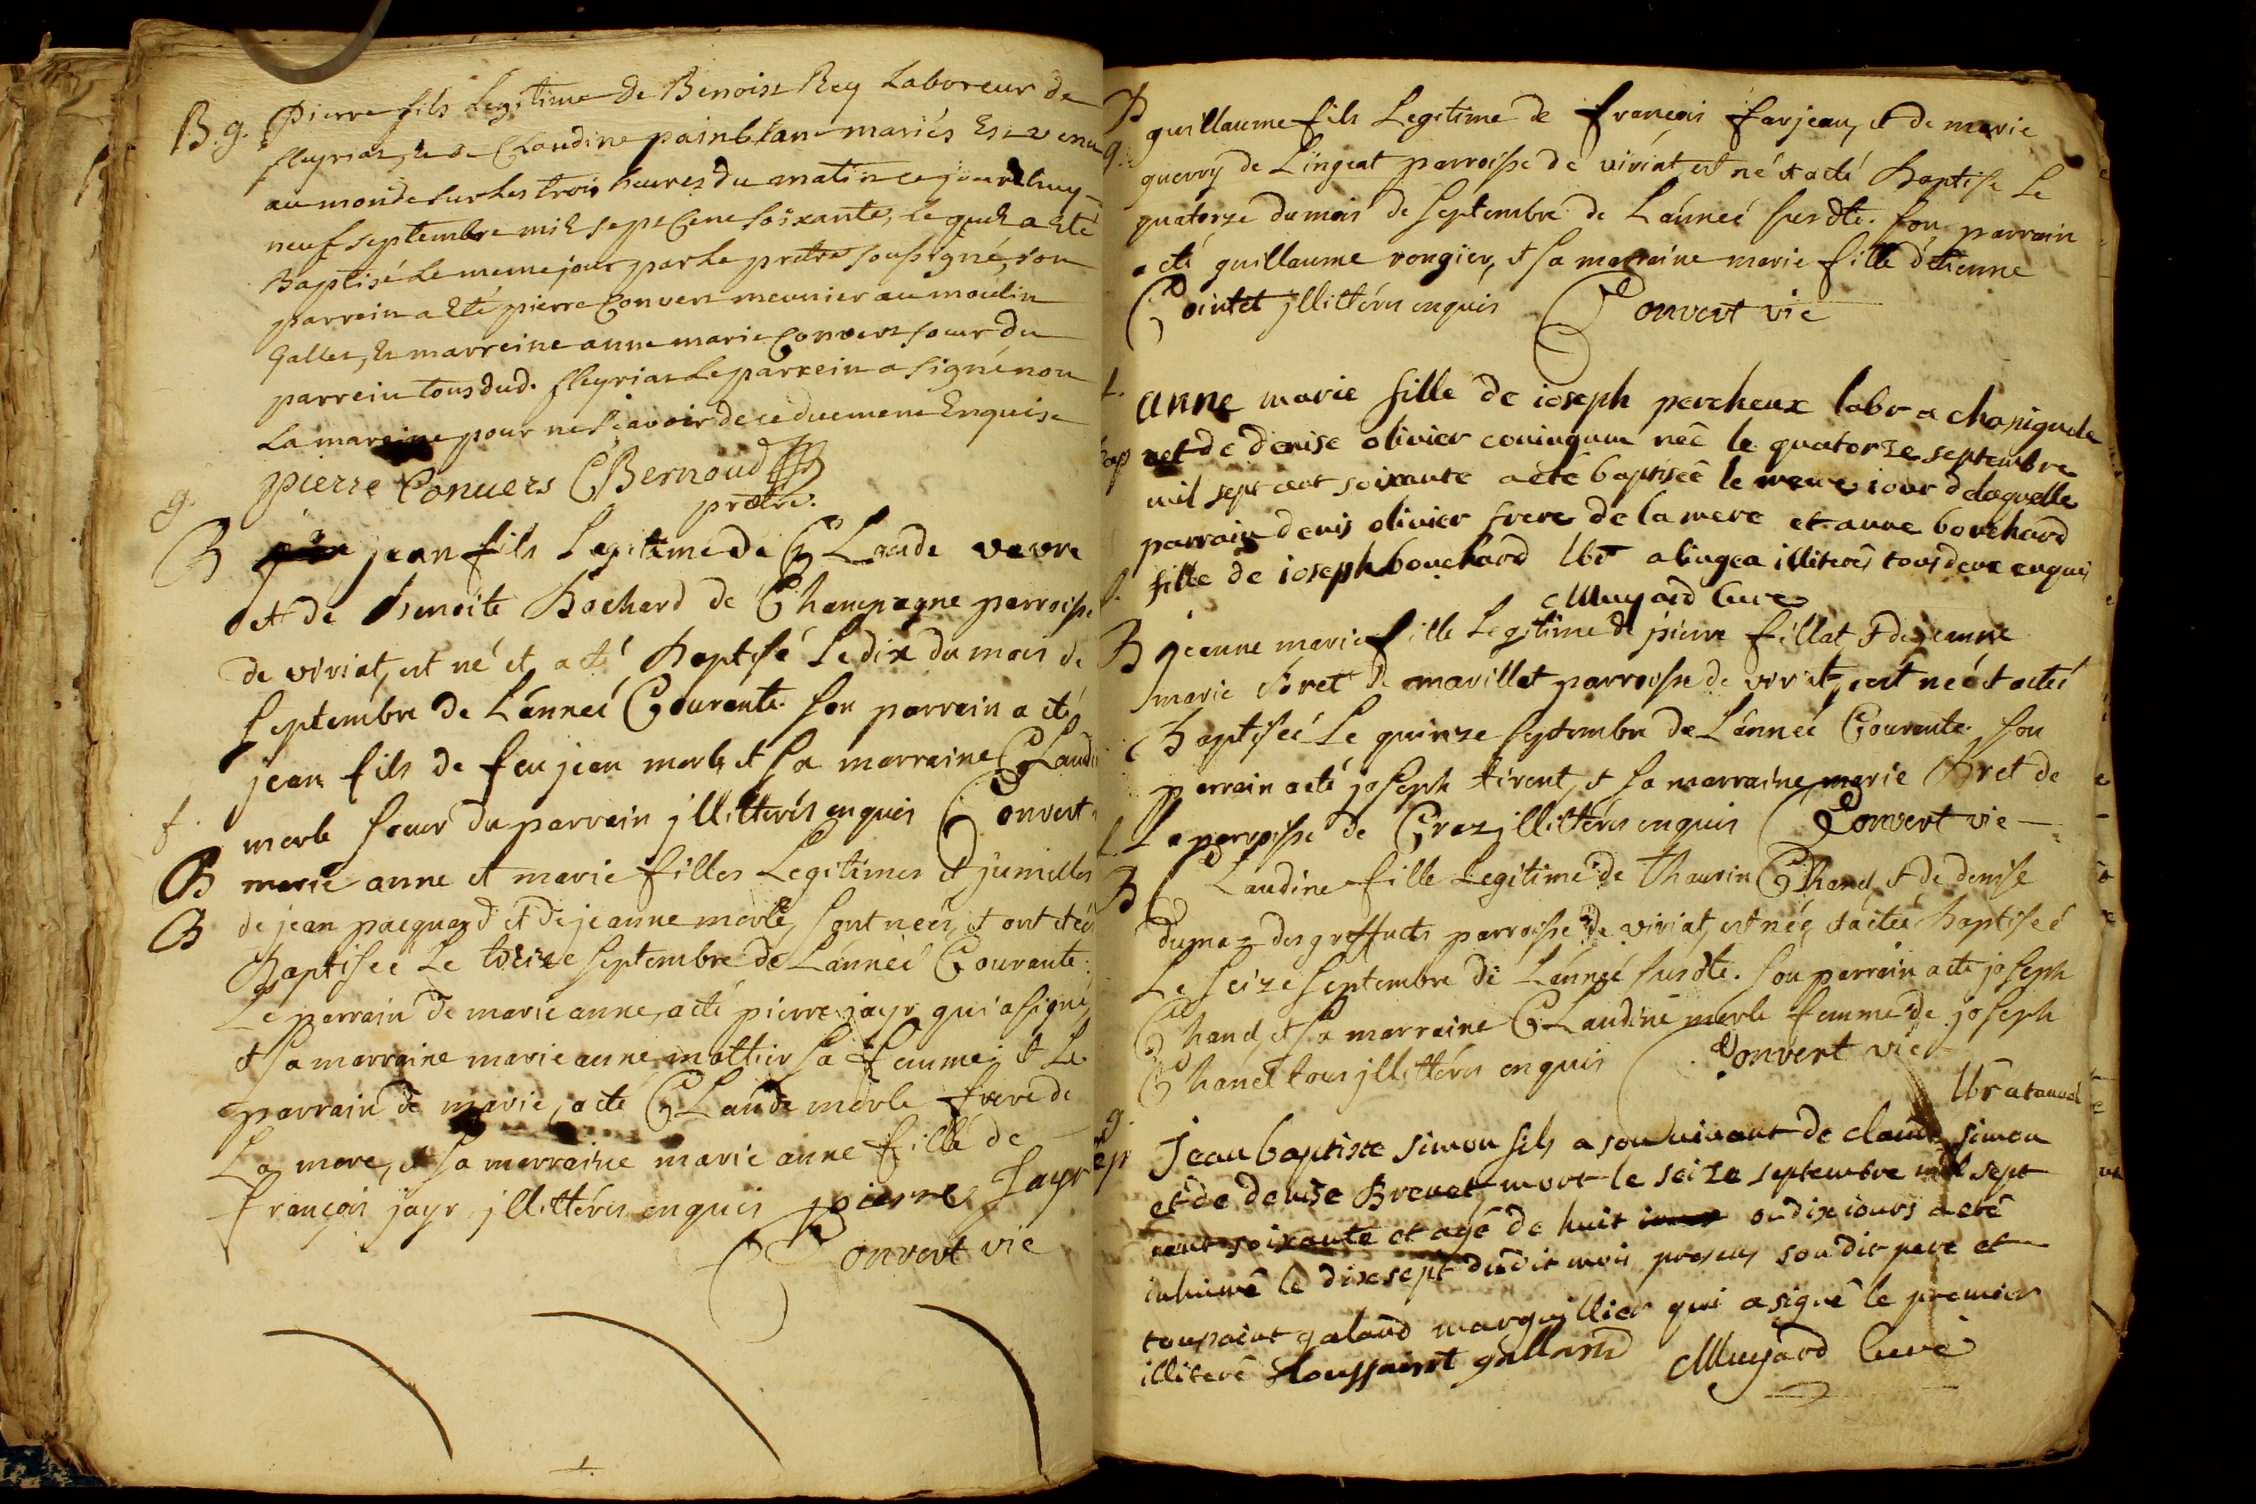 B. g. Pierre fils Legitime de Benoist Rey Laboreur de
fleyriat, & de Claudine painblan mariés Est venu
au monde sur les trois heures du matin ce jourdhuy
neuf septembre mil sept Cent soixante, le quel a Eté
Baptisé le meme jour par le pretre soussigné, son
parrein a Eté pierre Convers meunier au moulin
Gallet, & marreine anne marie Convers sœur du
parrein tous dud. fleyriat Le parrein a signé non
La mareine pour ne sçavoir de ce duement Enquise
pierre Convers CBernoud
prêtre.
g.
B jean fils Legitime de Claude vevre
et de benoite Bochard de Champagne parroisse
de viriat, est né et a eté Baptisé Le dix du mois de
Septembre de L'anneé Courante. son parrain a eté
jean fils de feu jean merle et sa marraine Claudi
f. merle sœur du parrain jllittérés enquis Convert
B marie anne et marie filles Legitimes et jumelles
B de jean pacquard et de jeanne merle, sont neés, et ont eteé
Baptiseé Le treize Septembre de L'anneé Courante.
Le parrain de marie anne, a eté pierre jayr qui a signé,
et sa marraine marie anne mottier sa femme; et Le
parrain de marie, a eté CLaude merle frere de
La mere, et sa marraine marie anne fille de
françois jayr jllittérés enquis pierre Jayr
Convert vic
B guillaume fils Legitime de françois farjean, et de marie
g. guerry de Lingeat parroisse de viriat, est né et a eté Baptisé Le
quatorze du mois de Septembre de L'anneé susdte. son parrain
a eté guillaume rongier, et sa marraine marie fille d'étienne
Cointet jllittérés enquis Convert vic
L. anne marie fille de ioseph percheux labr a chapignole
bap et de denise olivier coniugum neê le quatorze septembre
mil sept cent soixante a eté baptiseê le meme iour de laquelle
parrain denis olivier frere de la mere et anne bouchard
f. fille de ioseph bouchard lbr a lingea illiterés tous deux enquis
Muyard Cure
B jeanne marie fille Legitime de pierre fillat, et de jeanne
marie Bret de marillat parroisse de viriat, est née et a eteé
Baptiseé Le quinze septembre de L'anneé Courante. son
parrain a eté joseph tirent, et sa marraine marie Bret de
L. La paroisse de Craz jllittérés enquis Convert vic
B CLaudine fille Legitime de Thaurin Chanel, et de denise
dumaz des greffets parroisse de viriat, est née, et a eteé baptiseé
Le seize septembre de L'anneé susdte. son parrain a eté joseph
Chanel, et sa marraine CLaudine merle femme de joseph
Chanel tous jllittérés enquis Convert vic
g. lbr a tanvol
sep Jean baptiste simon fils a son vivant de claude simon
et de denise Brevet mort le seize septembre mil sept
cent soixante et agé de huit ou dix iours a eté
inhumê le dixsept dudit mois presens son dit pere et
toussaint galand marguillier qui a signê le premier
illiterê Toussaint galland Muyard Curé